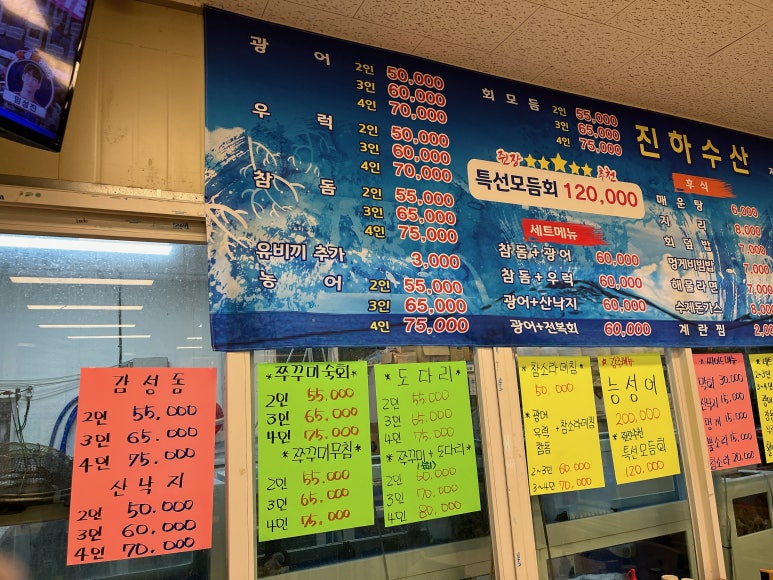 임성진
광 어
2인 50,000
3인 60,000
4인 70,000
우 럭
2인 50,000
3인 60,000
4인 70,000
참 돔
2인 55,000
3인 65,000
4인 75,000
유비끼 추가 3,000
농 어
2인 55,000
3인 65,000
4인 75,000
회 모 듬
2인 55,000
3인 65,000
4인 75,000
특선모듬회 120,000
세트메뉴
참돔+광어 60,000
참돔+우럭 60,000
광어+산낙지 60,000
광어+전복회 60,000
진하수산
후 식
매 운 탕 6,000
지 리 8,000
회 덮 밥 7,000
멍게비빔밥 7,000
해 물 라 면 7,000
수제돈가스 8,000
계 란 찜
감성돔
2인 55.000
3인 65.000
4인 75.000
산낙지
2인 50.000
3인 60.000
4인 70.000
*쭈꾸미숙회*
2인 55.000
3인 65.000
4인 75.000
*쭈꾸미무침*
2인 55.000
3인 65.000
4인 75.000
* 도다리 *
2인 55.000
3인 65.000
4인 75.000
*쭈꾸미+도다리*
2인 60.000
3인 70.000
4인 80.000
*참소라더침
50.000
*광어
우럭 +참소라더침
참돔
2~3인 60.000
3~4인 70.000
능성어
200.000
특선모듬회
120.000
30.000
15.000
15.000
15.000
20.000